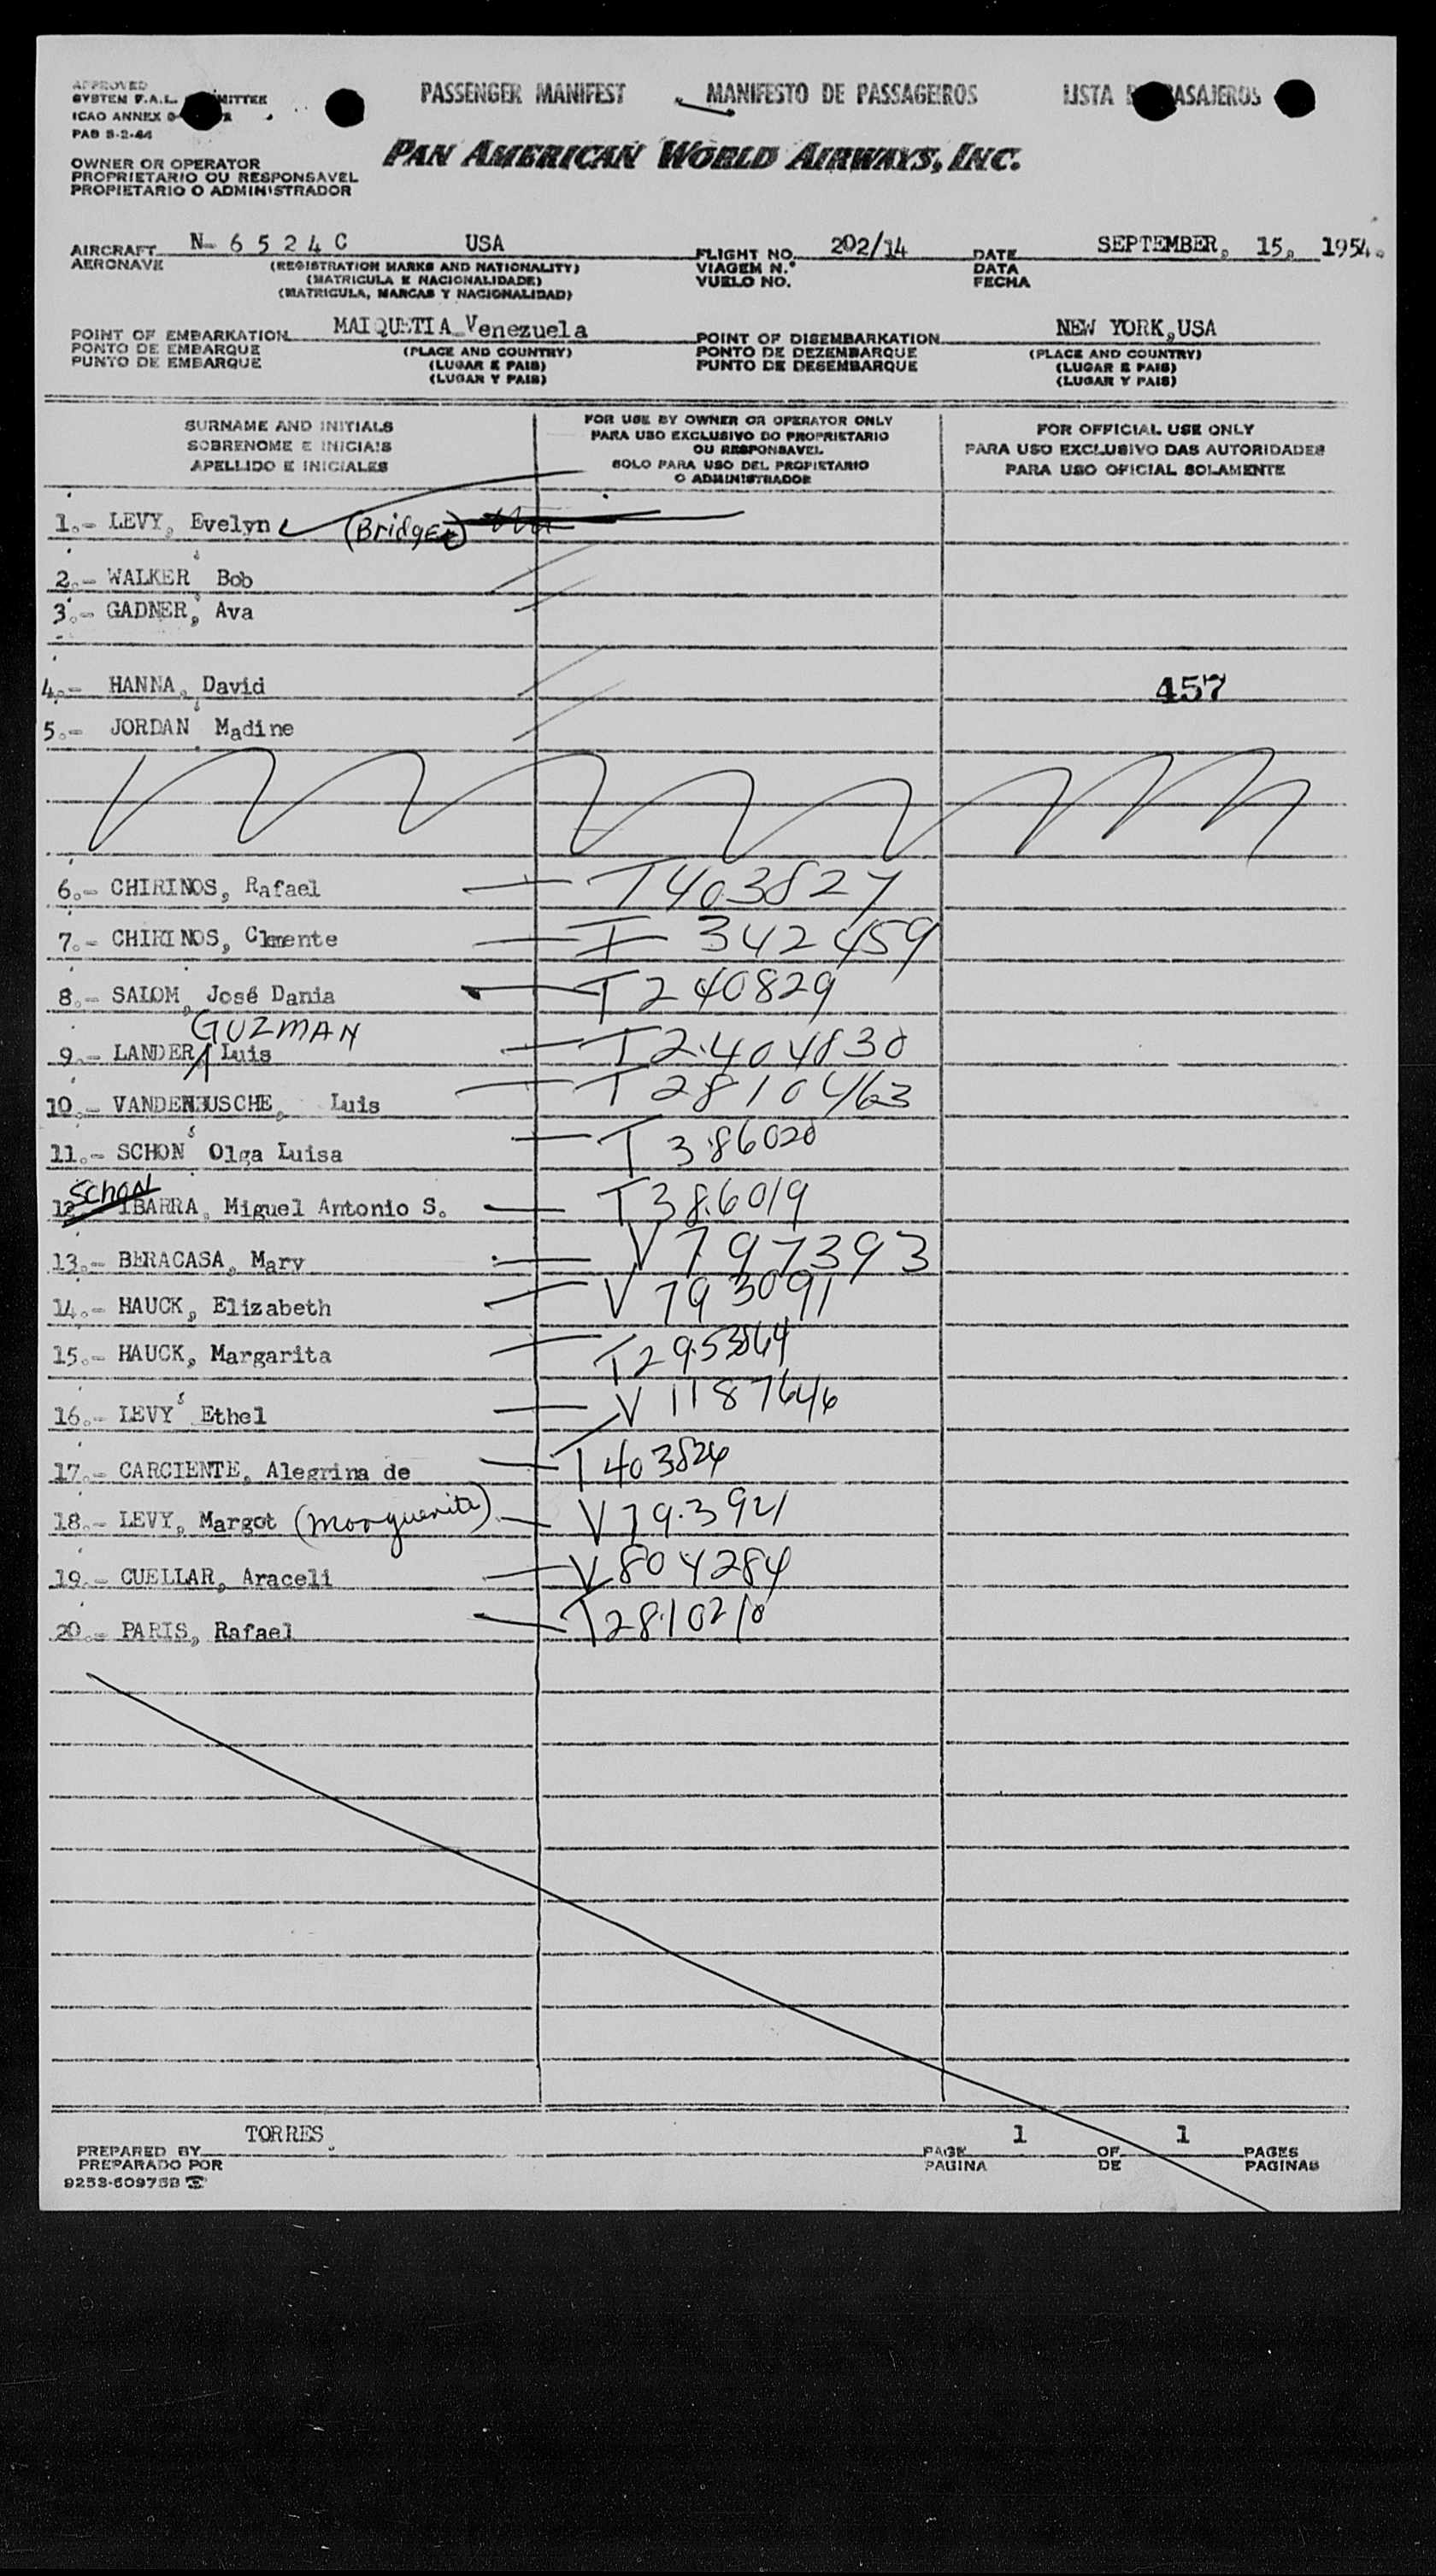 APPROVED
PASSENGER MANIFEST MANIFESTO DE PASSAGEIROS LISTA PASAJEROS
SYSTEM F.A.L. MITTEE
ICAO ANNEX 9
PAB 5-2-44
PAN AMERICAN WORLD AIRWAYS, INC.
OWNER OR OPERATOR
PROPRIETARIO OU RESPONSAVEL
PROPIETARIO O ADMINISTRADOR
AIRCRAFT N- 6 5 2 4 C USA FLIGHT NO. 202/14 DATE SEPTEMBER, 15, 1954.
AERONAVE (REGISTRATION MARKS AND NATIONALITY) VIAGEM N.° DATA
(MATRICULA E NACIONALIDADE) VUELO NO. FECHA
(MATRICULA, MARCAS Y NACIONALIDAD)
POINT OF EMBARKATION MAIQUETIA Venezuela POINT OF DISEMBARKATION NEW YORK, USA
PONTO DE EMBARQUE (PLACE AND COUNTRY) PONTO DE DEZEMBARQUE (PLACE AND COUNTRY)
PUNTO DE EMBARQUE (LUGAR E PAIS) PUNTO DE DESEMBARQUE (LUGAR E PAIS)
(LUGAR Y PAIS) (LUGAR Y PAIS)
SURNAME AND INITIALS
SOBRENOME E INICIAIS
APELLIDO E INICIALES
FOR USE BY OWNER OR OPERATOR ONLY
PARA USO EXCLUSIVO DO PROPRIETARIO
OU RESPONSAVEL
SOLO PARA USO DEL PROPIETARIO
O ADMINISTRADOR
FOR OFFICIAL USE ONLY
PARA USO EXCLUSIVO DAS AUTORIDADES
PARA USO OFICIAL SOLAMENTE
1.- LEVY, Evelyn (Bridget)
2.- WALKER, Bob
3.- GADNER, Ava
4.- HANNA, David 457
5.- JORDAN, Madine
6.- CHIRINOS, Rafael T403827
7.- CHIRINOS, Clemente T 342459
8.- SALOM, José Dania T240829
GUZMAN
9.- LANDER, Luis T2404830
10.- VANDENBUSCHE, Luis T 2810463
11.- SCHON, Olga Luisa T 386020
SCHON
12.- IBARRA, Miguel Antonio S. T386019
13.- BERACASA, Mary V 797393
14.- HAUCK, Elizabeth V 793091
15.- HAUCK, Margarita
16.- LEVY, Ethel V 1187646
17.- CARCIENTE, Alegrina de T 403826
18.- LEVY, Margot (Marguerite) V 793921
19.- CUELLAR, Araceli V 804284
20.- PARIS, Rafael T2810210
PREPARED BY TORRES PAGE 1 OF 1 PAGES
PREPARADO POR PAGINA DE PAGINAS
9253-60975B